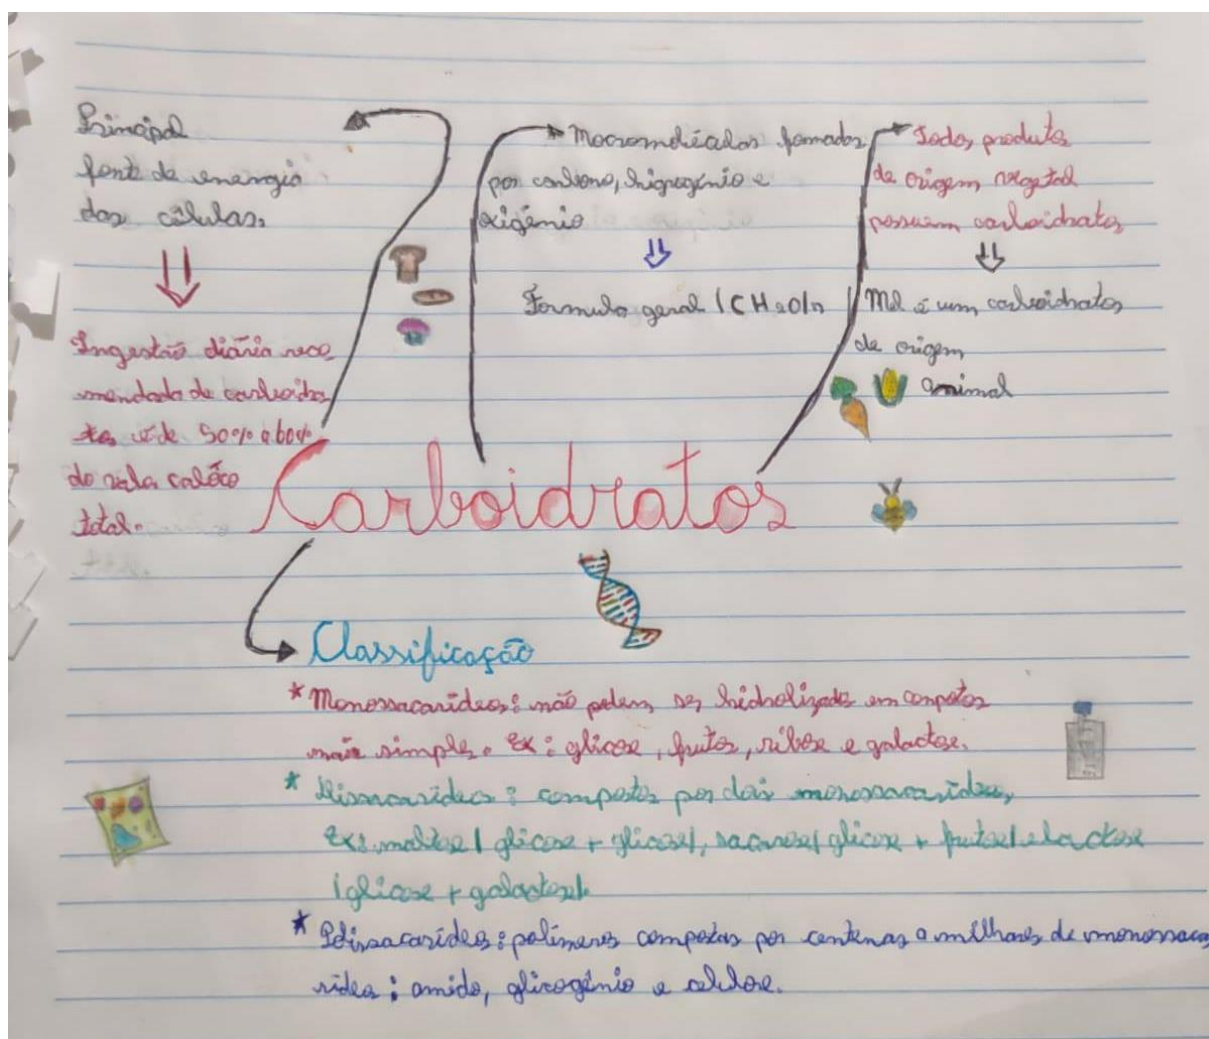 Principal
fonte de energia
das células.
Ingestão diária reco
mendada de carboidra
tos é de 50% a 60%
do valo calóco
total.
Macromoléculas formadas
por carbono, higrogênio e
oxigênio
Formula geral (CH2O)n
Todos produtos
de origem vegetal
possuem carboidratos
Mel é um carboidratos
de origem
animal
Carboidratos
Classificação
* Monossacarídeos: não podem ser hidrolizado em conpostos
mais simples. Ex: glicose, frutos, ribose e galactose.
* Dissacarídeos: compostos por dois monossacarídeos,
Ex: maltose (glicose + glicose), sacarose( glicose + frutose) e lactose
(glicose + galactose).
* Polissacarídeos: polímeros compostos por centenas a milhares de monossaca
rídeos: amido, glicogênio e celulose.